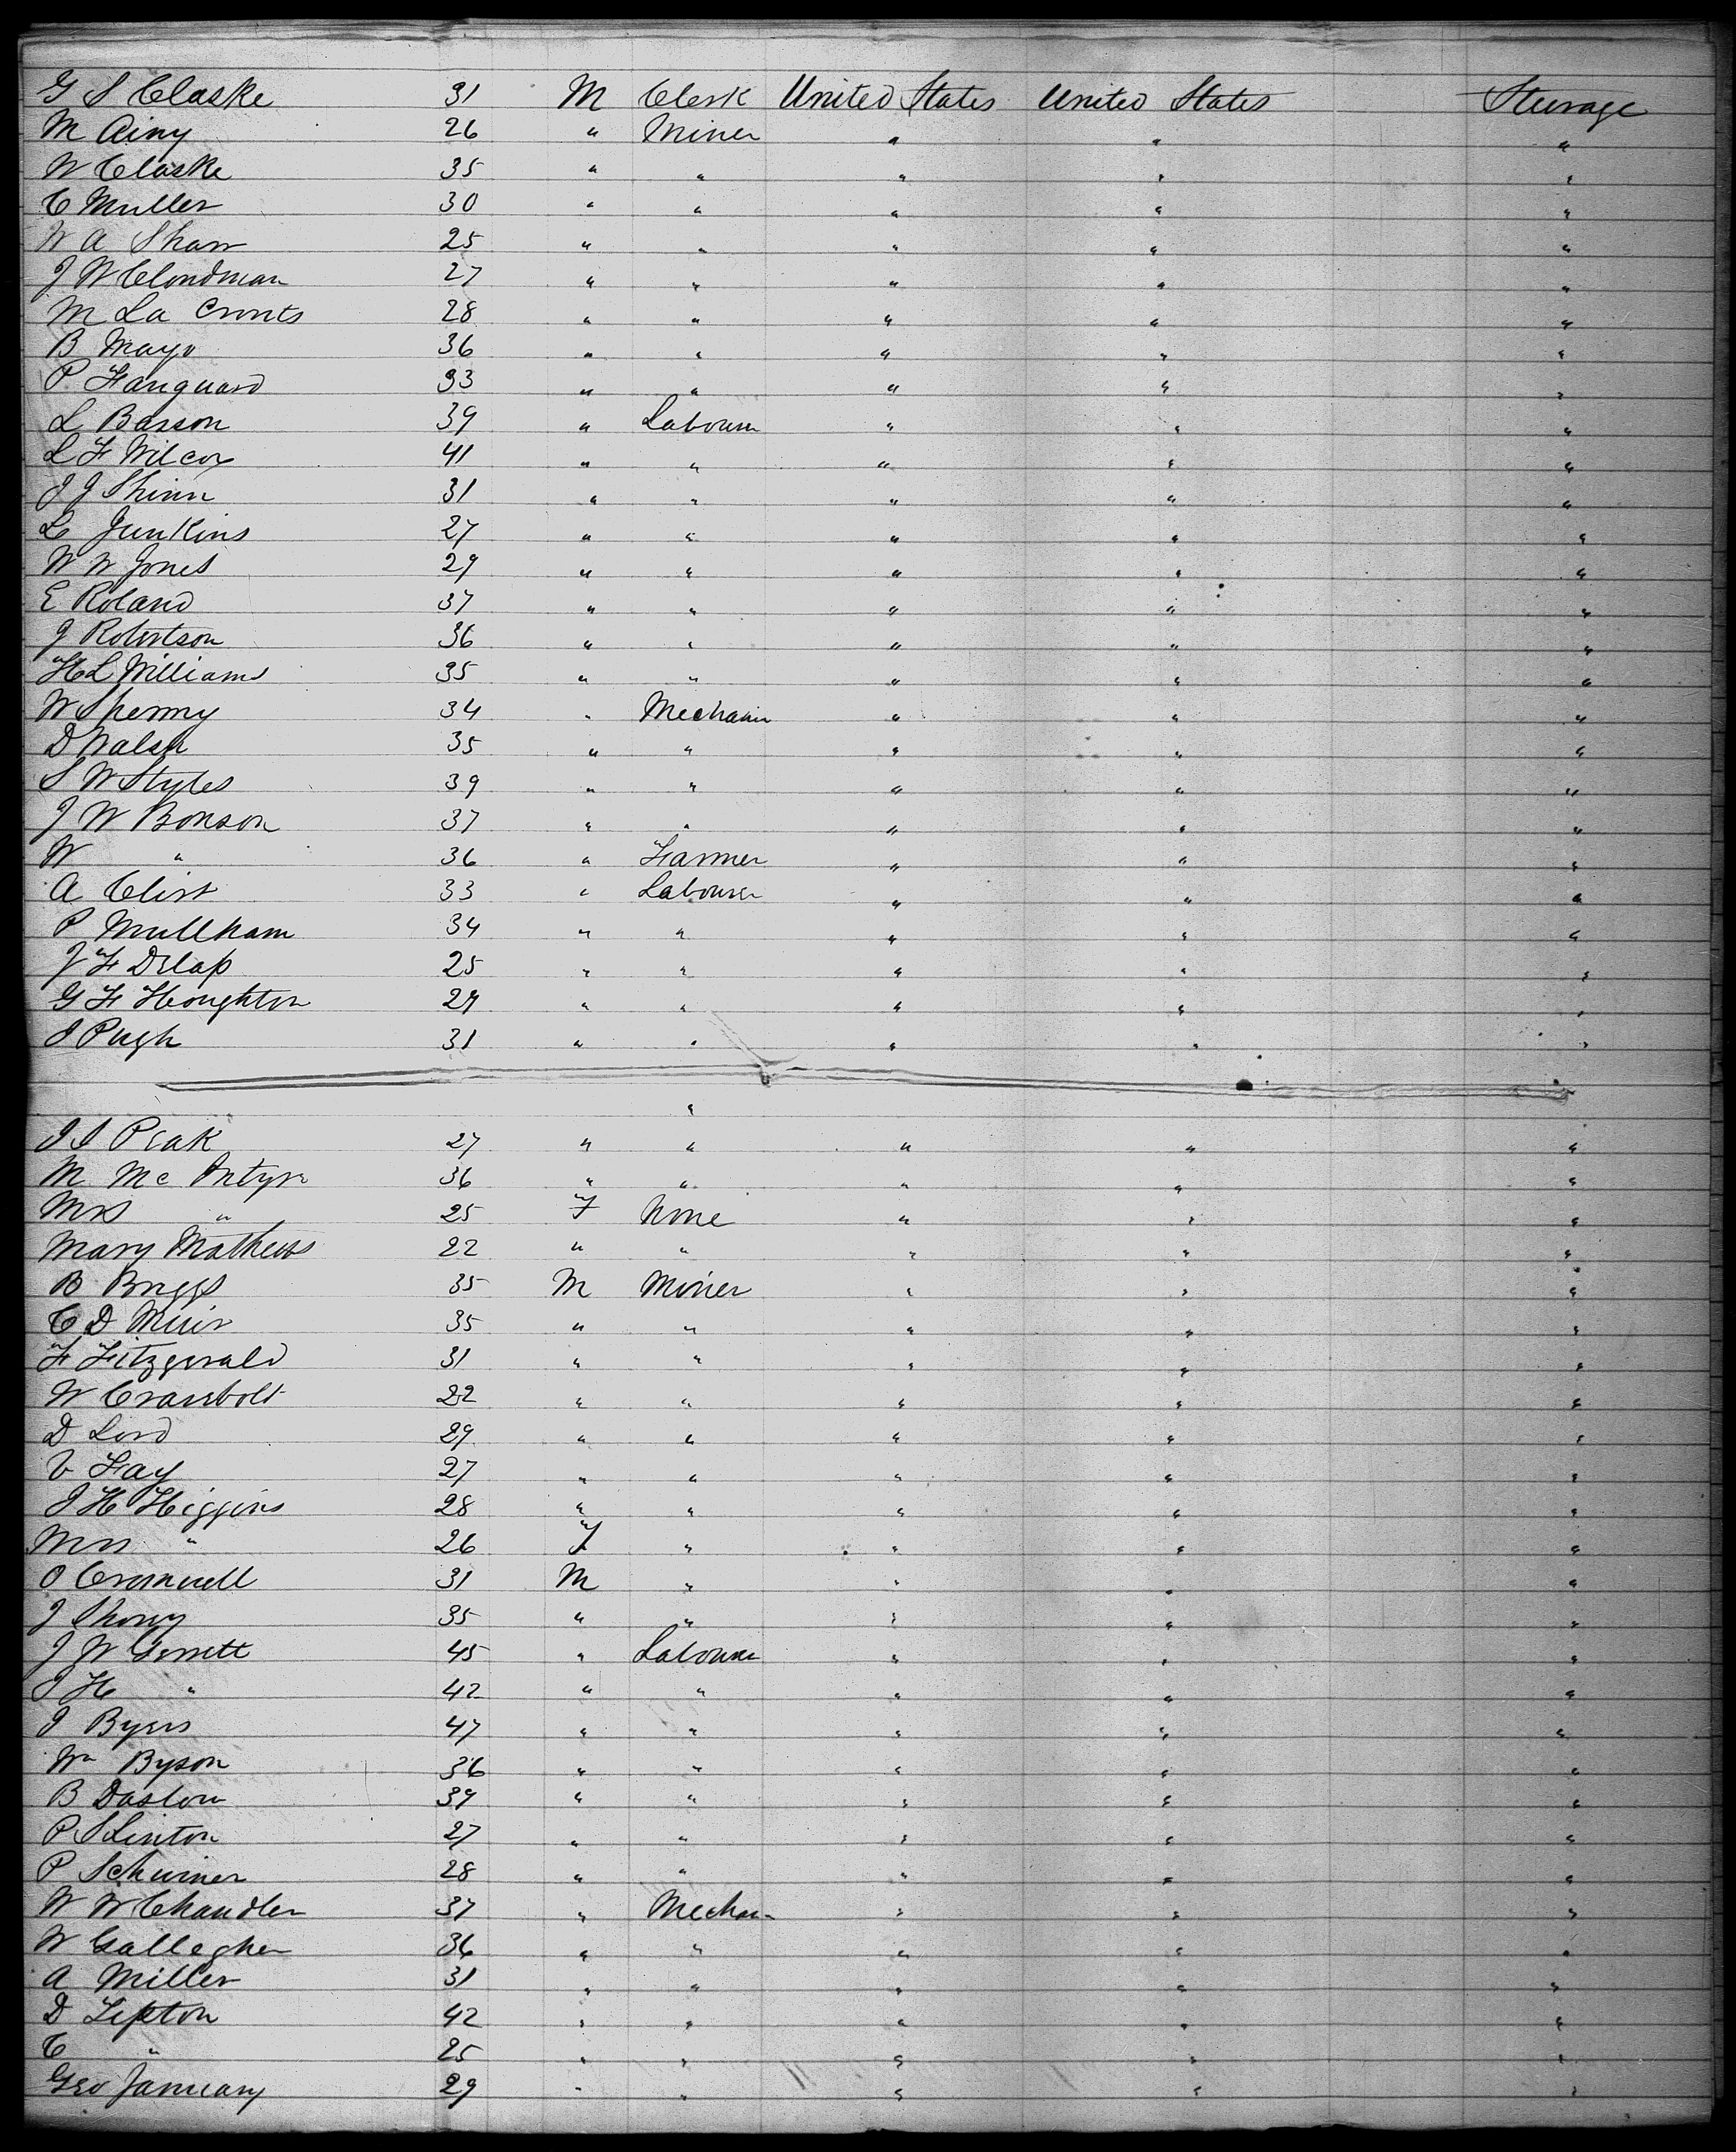 G S Claske 31 M Clerk United States United States Steerage
M Ainy 26 " Miner " " "
W Claske 35 " " " " "
C Muller 30 " " " " "
W A Shaw 25 " " " " "
J W Clondman 27 " " " " "
M La Cronts 28 " " " " "
B Mayo 36 " " " " "
P Fanguard 33 " " " " "
L Basson 39 " Labourer " " "
L F Wilcox 41 " " " " "
J J Shinn 31 " " " " "
L Junkins 27 " " " " "
W W Jones 29 " " " " "
E Roland 37 " " " " "
J Robertson 36 " " " " "
H L Williams 35 " " " " "
W Spermy 34 " Mechanic " " "
D Walsh 35 " " " " "
S W Styles 39 " " " " "
J W Bonson 37 " " " " "
W " 36 " Farmer " " "
A Clist 33 " Labourer " " "
P Mullham 34 " " " " "
J F Delap 25 " " " " "
G F Houghton 29 " " " " "
J Pugh 31 " " " " "
"
J S Peak 27 " " " " "
M Mc Intyre 36 " " " " "
Mrs " 25 F None " " "
Mary Mathews 22 " " " " "
B Briggs 35 M Miner " " "
C D Muir 35 " " " " "
F Fitzgerald 31 " " " " "
W Crassbolt 22 " " " " "
D Lord 29 " " " " "
V Fay 27 " " " " "
J H Higgins 28 " " " " "
Mrs " 26 F " " " "
O Cromwell 31 M " " " "
J Shorey 35 " " " " "
J W Gerrett 45 " Labourer " " "
J H " 42 " " " " "
J Byers 47 " " " " "
Wm Byson 36 " " " " "
B Daslow 39 " " " " "
P S Linton 27 " " " " "
P Schwiner 28 " " " " "
W W Chandler 37 " Mechan " " "
W Gallegher 36 " " " " "
A Miller 31 " " " " "
D Lepton 42 " " " " "
C " 25 " " " " "
Geo January 29 " " " " "